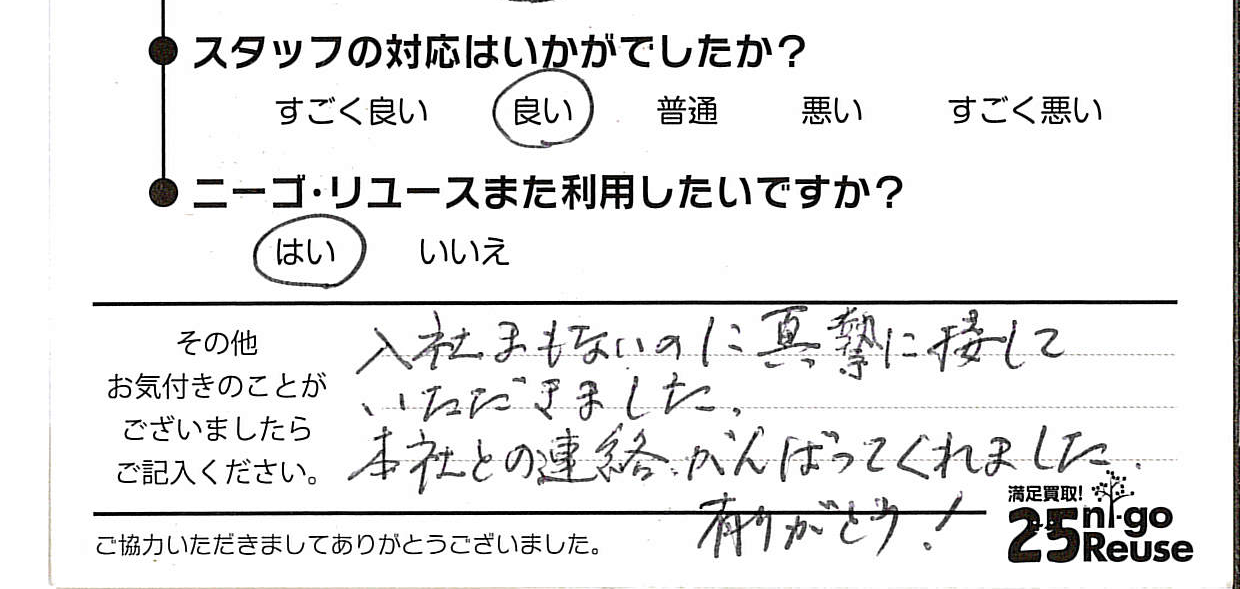 スタッフの対応はいかがでしたか?
すごく良い 良い 普通 悪い すごく悪い
ニーゴ・リユースまた利用したいですか?
はい いいえ
その他
お気付きのことが
ございましたら
ご記入ください。
入社まもないのに真摯に接して
いただきました。
本社との連絡、がんばってくれました。
有りがとう!
ご協力いただきましてありがとうございました。
満足買取!
25 ni-go
Reuse